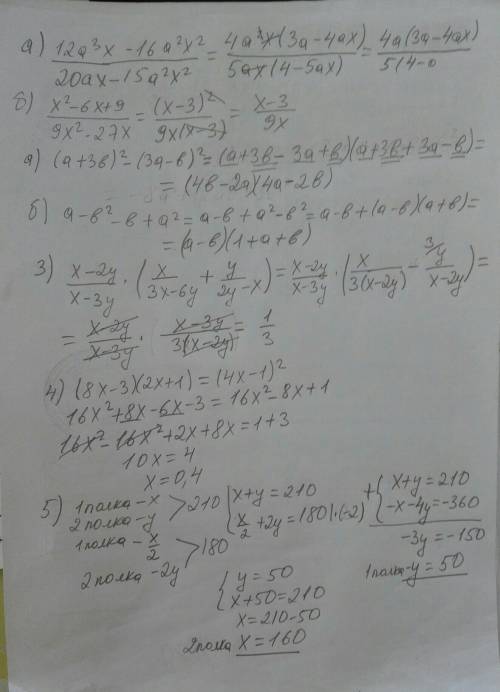 а) (12a³x - 16a²x²)/(20ax - 15a²x²) = (4a²x(3a - 4ax))/(5ax(4 - 5ax)) = (4a(3a - 4ax))/(5(4-
б) (x² - 6x + 9)/(9x² - 27x) = (x-3)²/(9x(x-3)) = (x-3)/(9x)
а) (a+3в)² - (3a-в)² = (a+3в - 3a+в)(a+3в+3a-в) =
= (4в - 2a)(4a - 2в)
б) a-в² - в + a² = a-в + a² - в² = a-в + (a-в)(a+в) =
= (a-в)(1+a+в)
3) (x-2y)/(x-3y) · (x/(3x-6y) + y/(2y-x)) = (x-2y)/(x-3y) · (x/(3(x-2y)) - ³⁄y/(x-2y)) =
= (x-2y)/(x-3y) · (x-3y)/(3(x-2y)) = 1/3
4) (8x-3)(2x+1) = (4x-1)²
16x² + 8x - 6x - 3 = 16x² - 8x + 1
16x² - 16x² + 2x + 8x = 1 + 3
10x = 4
x = 0,4
5) 1 полка - x
2 полка - y > 210
1 полка - x/2
2 полка - 2y > 180
{ x+y = 210
x/2 + 2y = 180 | ·(-2)
+ { x+y = 210
-x - 4y = -360
-3y = -150
1 полка - y = 50
{ y = 50
x + 50 = 210
x = 210 - 50
2 полка x = 160